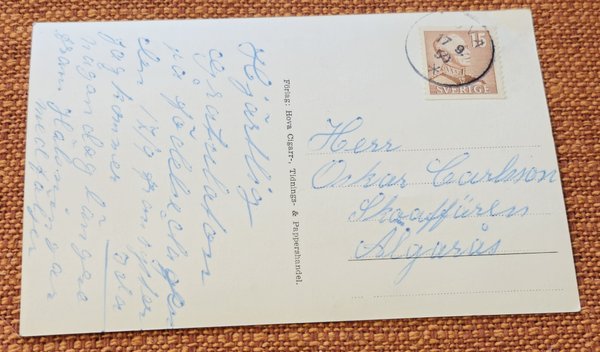 Hjärtlig
Gratulation
på födelsedagen
den 17/9
Jag kommer
någon dag längre
fram Hälsningar
Förlag: Hova Cigarr-, Tidnings- & Pappershandel.
15
17 9
SVERIGE
Herr
Oskar Carlsson
Skoaffären
Älgarås